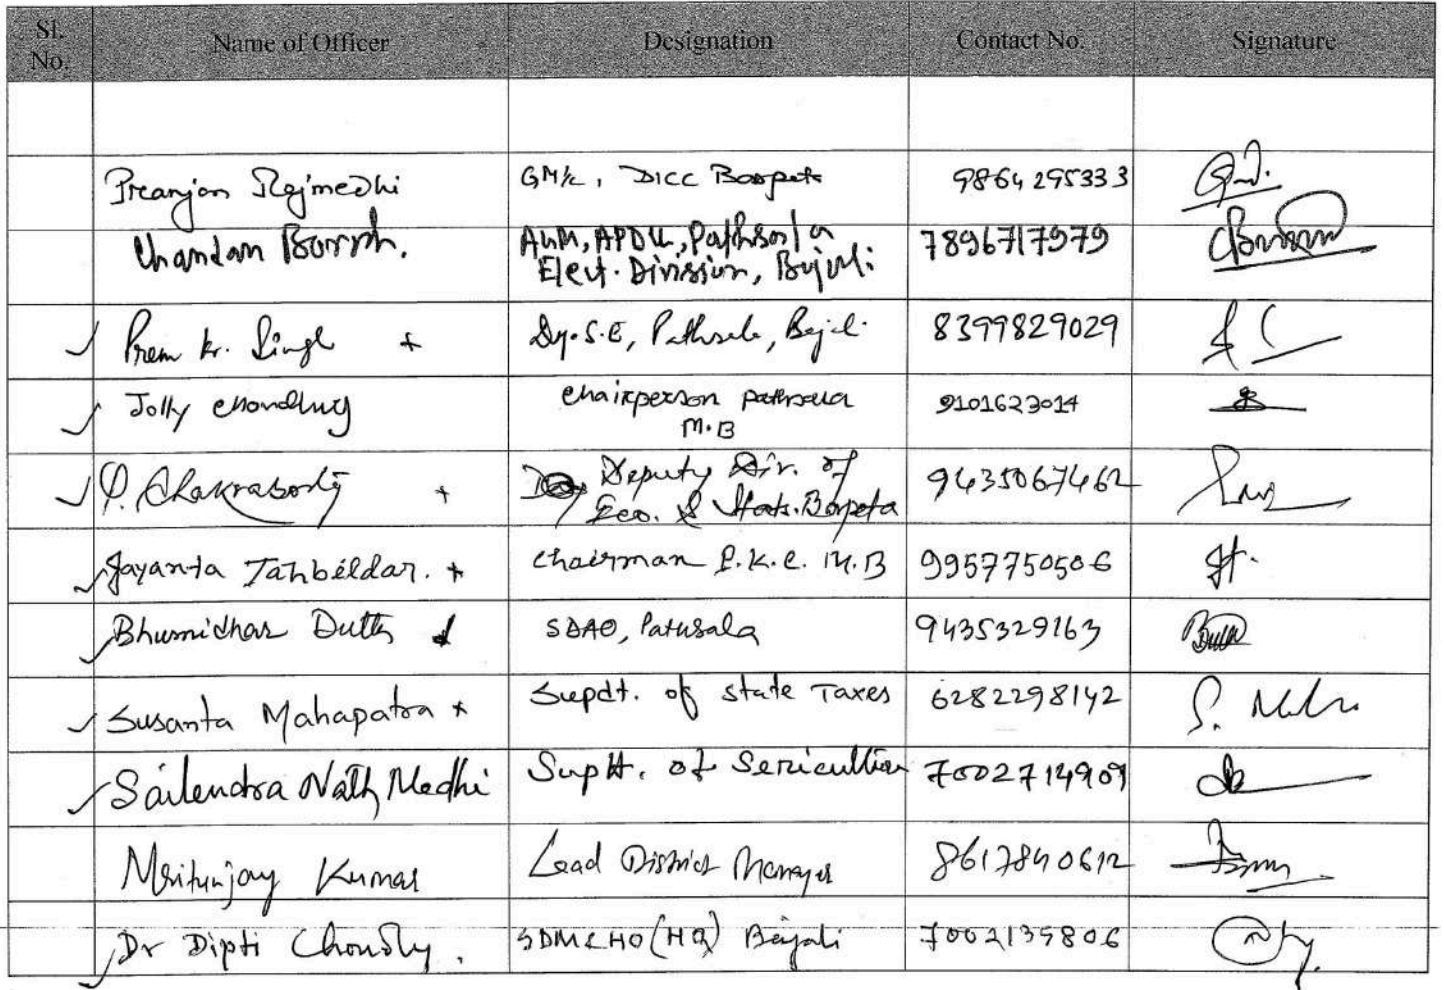 Sl. No. Name of Officer Designation Contact No. Signature
Preanjan Rajmedhi GM/c, DICC Barpeta 9864295333
Chandan Borah. AGM, APDCL, Pathsala 7896717979
Elect. Division, Bajali
✓ Prem kr. Singh + Dy. S.E, Pathsala, Bajali 8399829029
✓ Jolly Choudhury Chairperson Pathsala 9101623014
M.B
✓ P. Chakraborty + Deputy Dir. of 9435067462
Eco. & Stats. Barpeta
✓ Jayanta Tahbildar. + Chairman P.K.C. M.B 9957750506
✓ Bhumidhar Dutta SDAO, Pathsala 9435329163
✓ Susanta Mahapatra + Supdt. of state Taxes 6282298142 S.
✓ Sailendra Nath Medhi Suptt. of Sericulture 7002714909
Mritunjay Kumar Lead District Manager 8617840612
✓ Dr Dipti Choudhy. SDM&HO (HQ) Bajali 7002135806